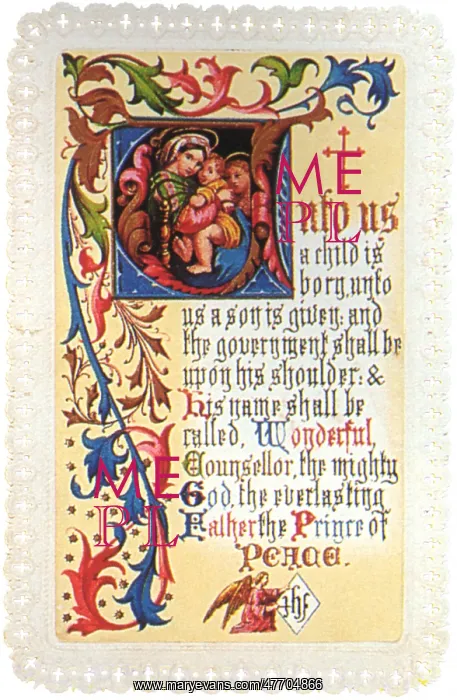 Unto us
a child is
born, unto
us a son is given: and
the government shall be
upon his shoulder: &
his name shall be
called, Wonderful,
Counsellor, the mighty
God, the everlasting
Father the Prince of
Peace.
ihs
ME
PL
ME
PL
www.maryevans.com/47704866